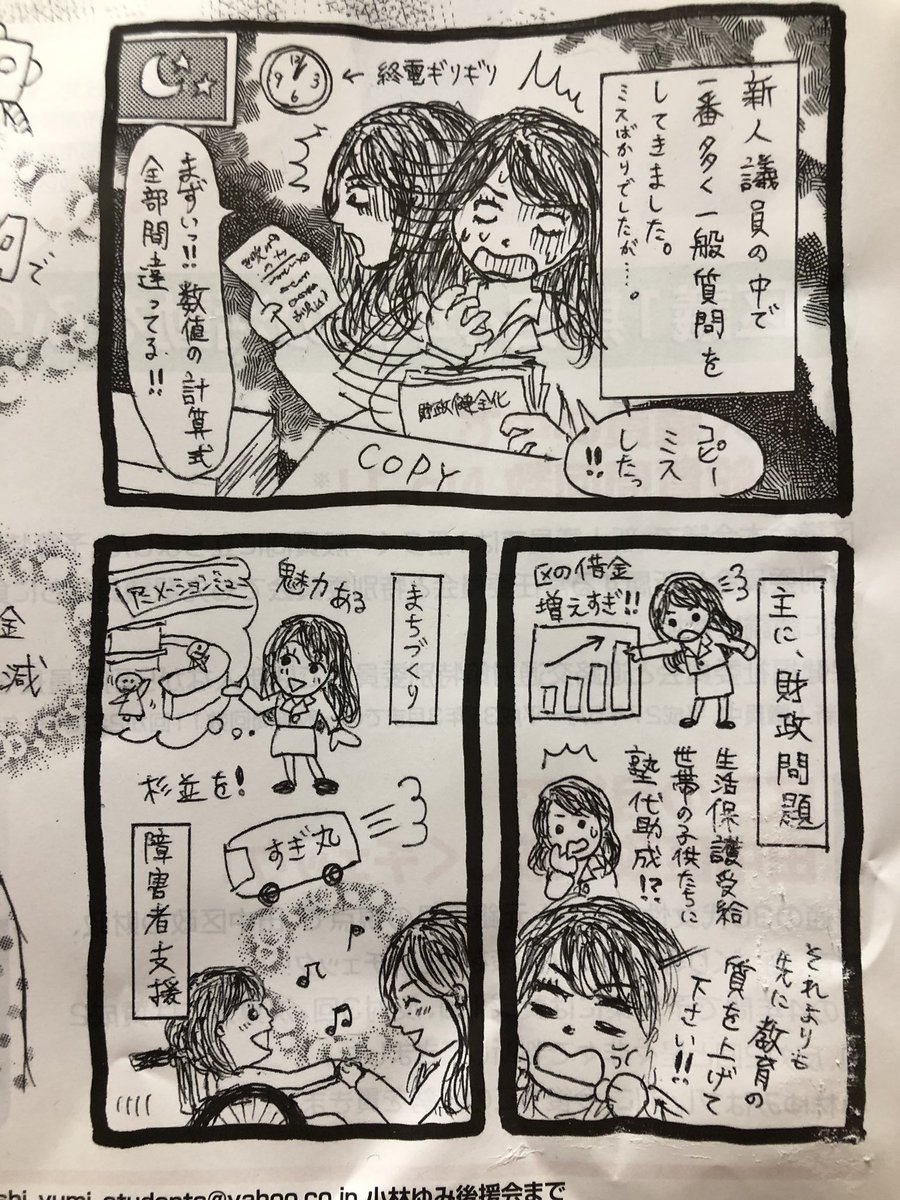 新人議員の中で
一番多く一般質問を
してきました。
ミスばかりでしたが…。
← 終電ギリギリ
12
3
6
9
まずいっ!! 数値の計算式
全部間違ってる!!
財政健全化
COPY
コピー
ミス
したっ
!!
主に、財政問題
区の借金
増えすぎ!!
生活保護受給
世帯の子供たちに
塾代助成!?
それよりも
先に教育の
質を上げて
下さい!!
まちづくり
魅力ある
アニメーションミュ
杉並を!
すぎ丸
障害者支援
で
金
減
shi_yumi_students@yahoo.co.jp 小林ゆみ後援会まで